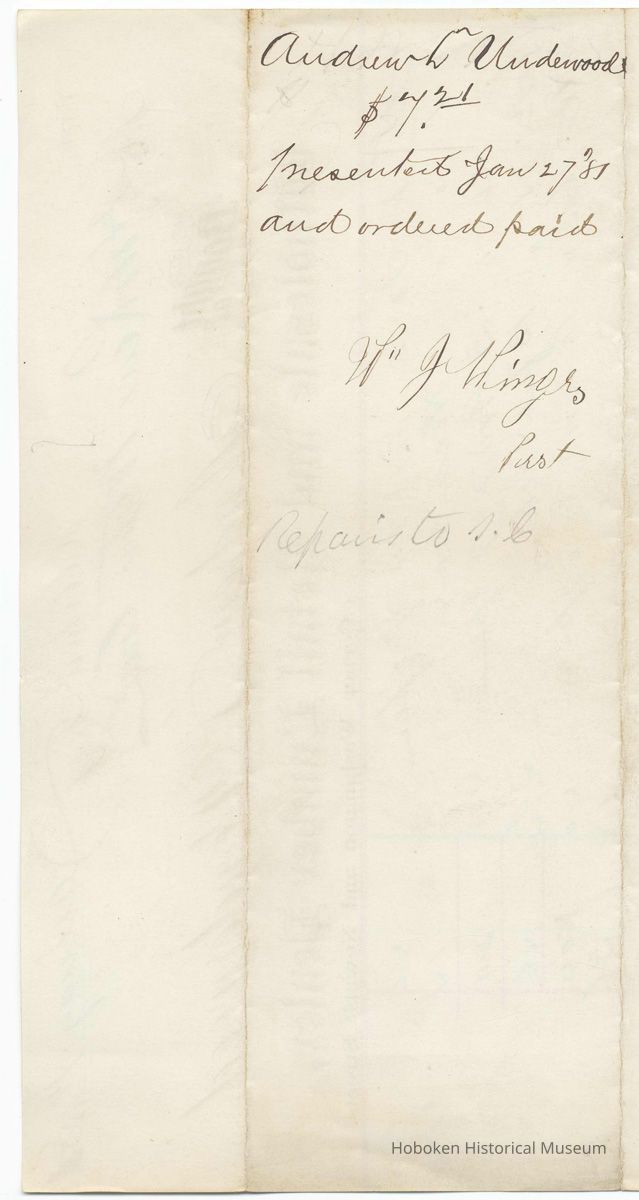 Andrew L. Underwood
$ 7.21
presented Jan 27 '81
and ordered paid
Wm J Winges
Prest
Repairs to S. C
Hoboken Historical Museum